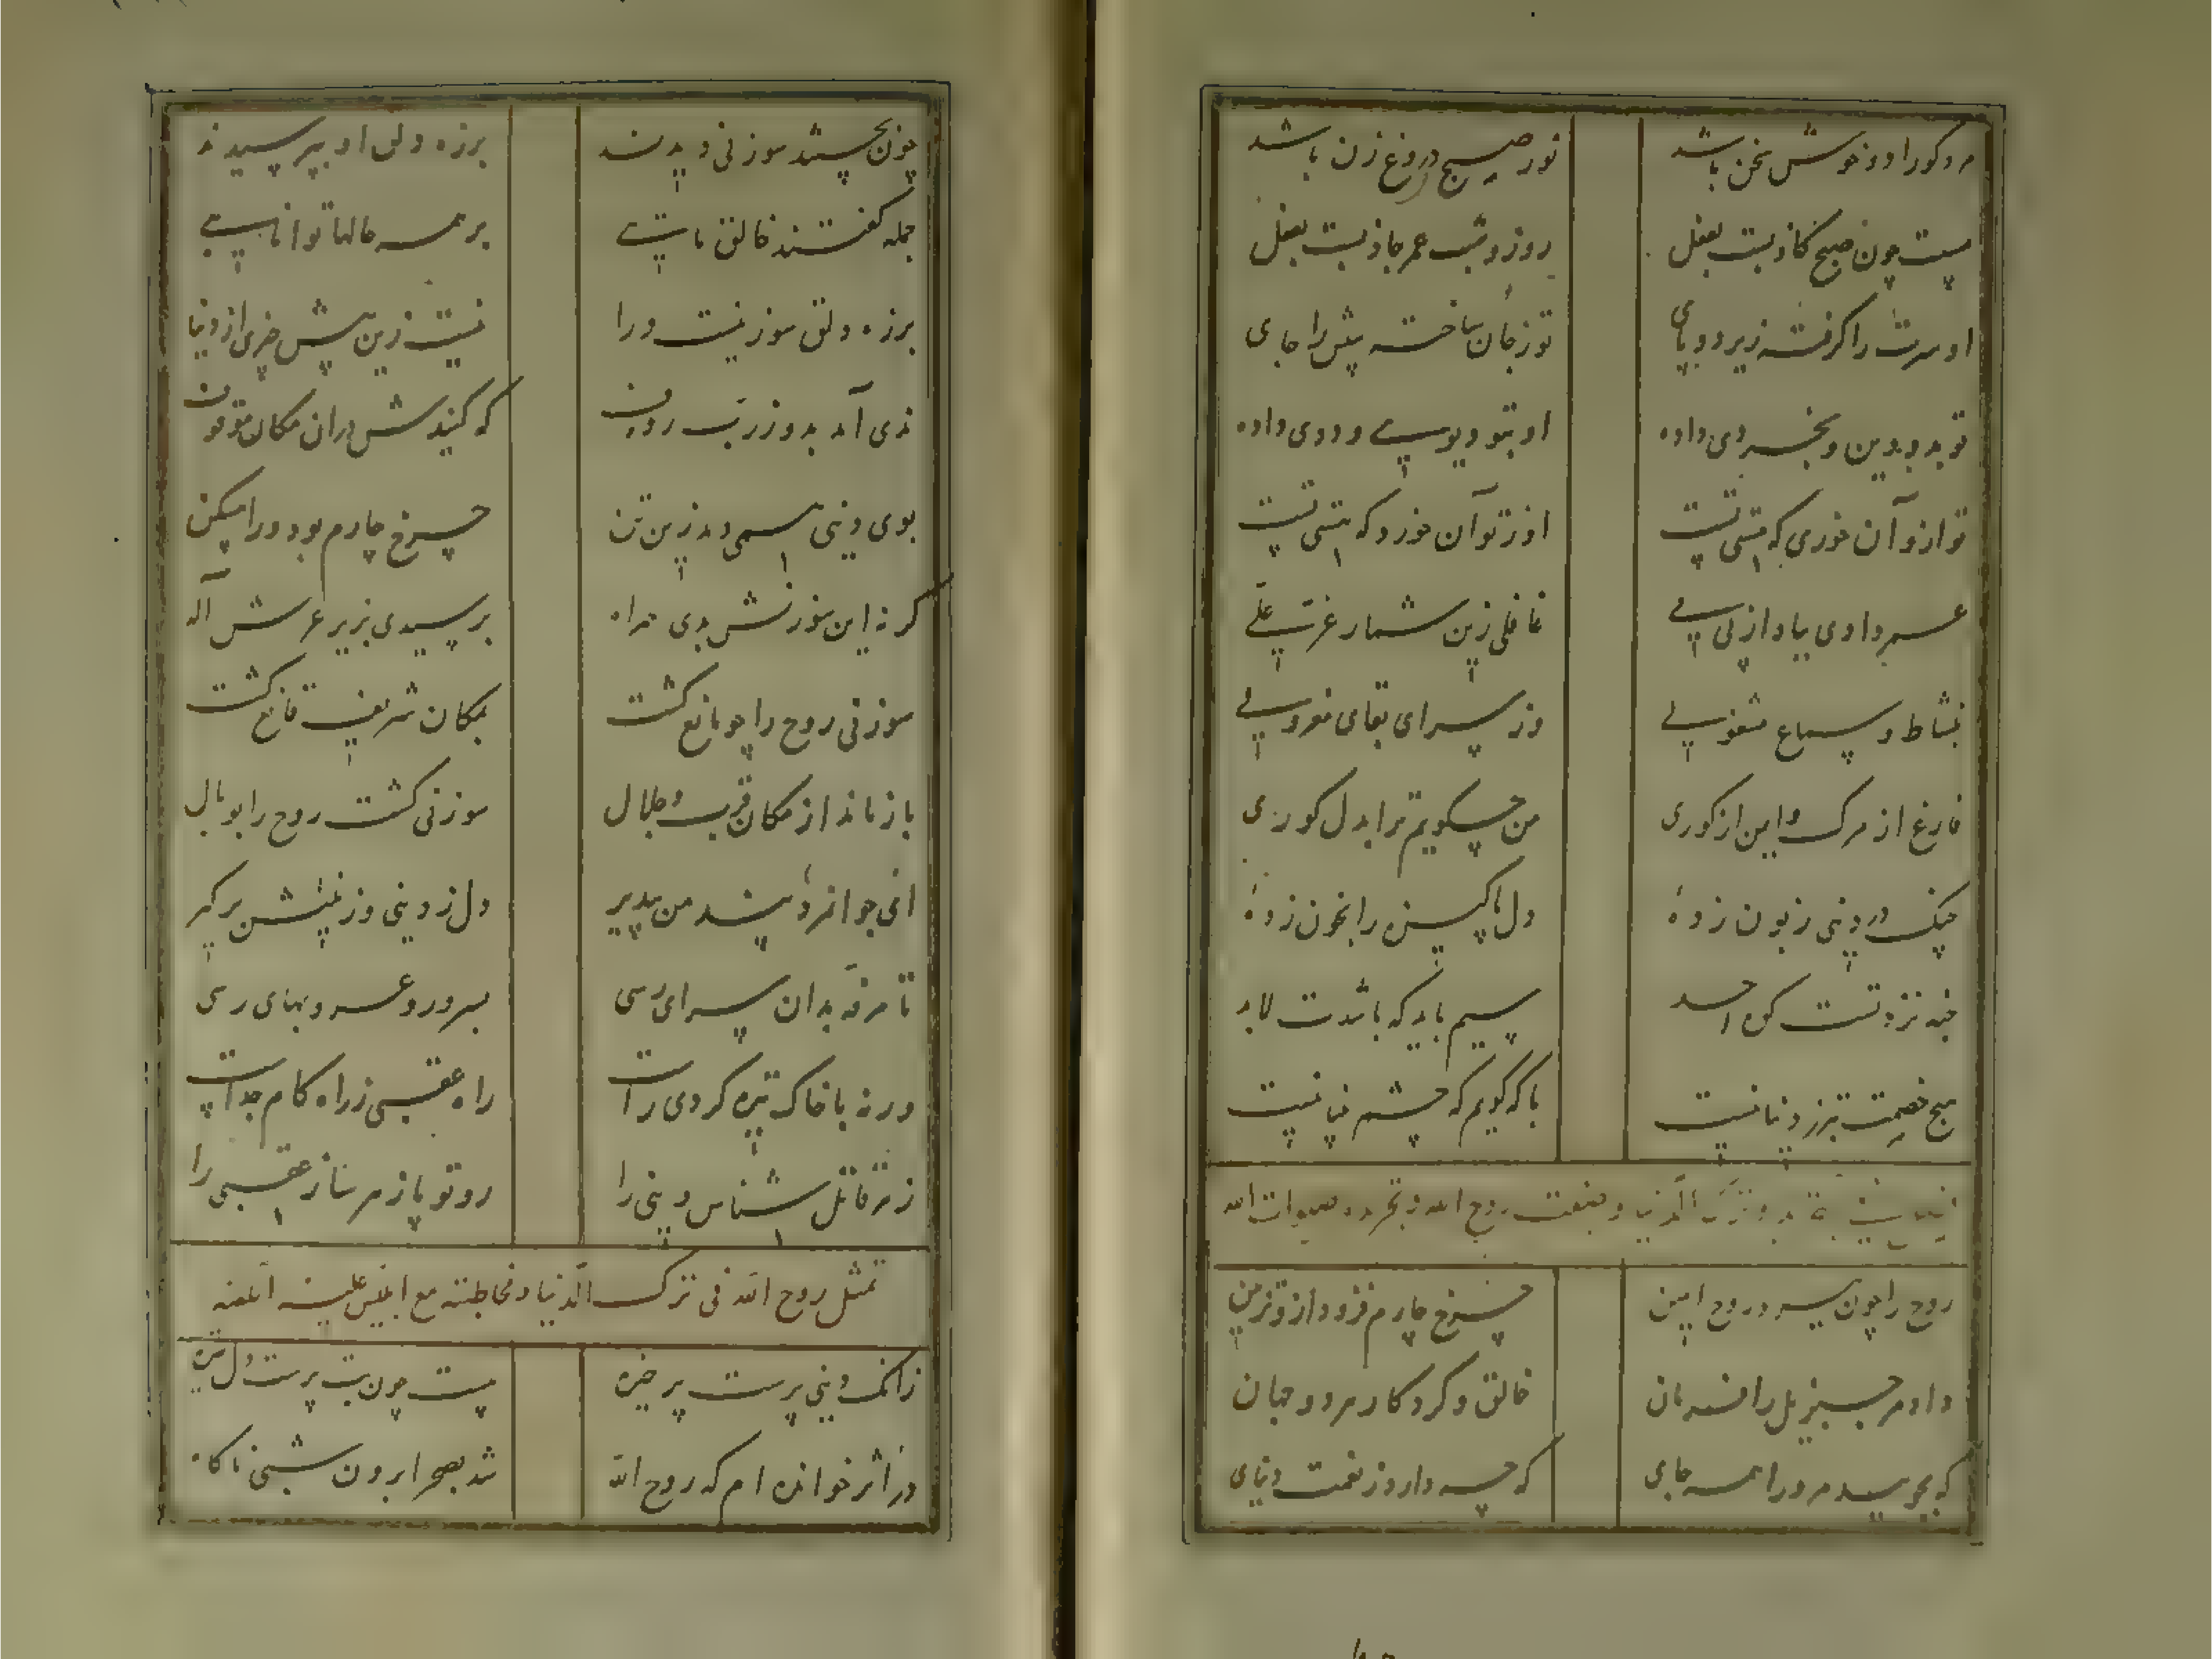 مرد کورا دو زخوش سخن باشد
نور صبحِ دروغ زن باشد
هست چون صبح کاذبت بفعل
روز و شب عمر جاذبت بفعل
او سرت را گرفته زیر دو پای
تو ز جان ساخته پیش را جای
تو بدو دین و بخردی داده
او بتو دیوی و ددی داده
تو ازو آن خوری که مستی تست
او ز تو آن خورد که هستی تست
عمر دادی بباد از پی می
غافلی زین شمار غرت علی
بنشاط و سماع مشغولی
وز سرای بقای معزولی
فارغ از مرگ و ایمن از گوری
من چگویم ترا بدل کوری
چنگ در دنیی زبون زده
دل پاکیزه را بخون زده
حبه نزد تست کوه احد
سیم باید که باشدت لابد
هیچ خصمت بتر ز دنیا نیست
با که گویم که چشم بینا نیست
روح را چون ببرد روح امین
چرخ چارم فزود ازو تزیین
داد مر جبرئیل را فرمان
خالق و کردکار هر دو جهان
که بجویید مرو را همه جای
که چه دارد ز نعمت دنیای
چون بجستند سوزنی دیدند
بر زه دلق او بپرسیدند
جمله گفتند خالق مایی
بر همه حالها توانایی
بر زه دلق سوزنیست ورا
نیست زین بیش چیزی از دنیا
ندی آمد بدو ز رب رؤف
که کنیدش دران مکان موقوف
بوی دنیی همی دمد زین تن
چرخ چارم بود ورا مسکن
گر نه این سوزنش بدی همراه
برسیدی بزیر عرش اله
سوزنی روح را چو مانع گشت
بمکان شریف قانع گشت
باز ماند از مکان قرب و جلال
سوزنی گشت روح را بوبال
ای جوانمرد پند من بپذیر
دل ز دنیی و زینتش برگیر
تا مرفه بدان سرای رسی
بسرور و عز و بهای رسی
ورنه با خاک تیره گردی راست
راه عقبی ز راه کام جداست
زهر قاتل شناس دنیی را
رو تو پازهر ساز عقبی را
تمثل روح الله فی ترک الدنیا و مخاطبته مع ابلیس علیه اللعنه
زانک دنیی پرست پر خیره
هست چون بت پرست دل تیره
در اثر خوانده ام که روح الله
شد بصحرا برون شبی ناگاه